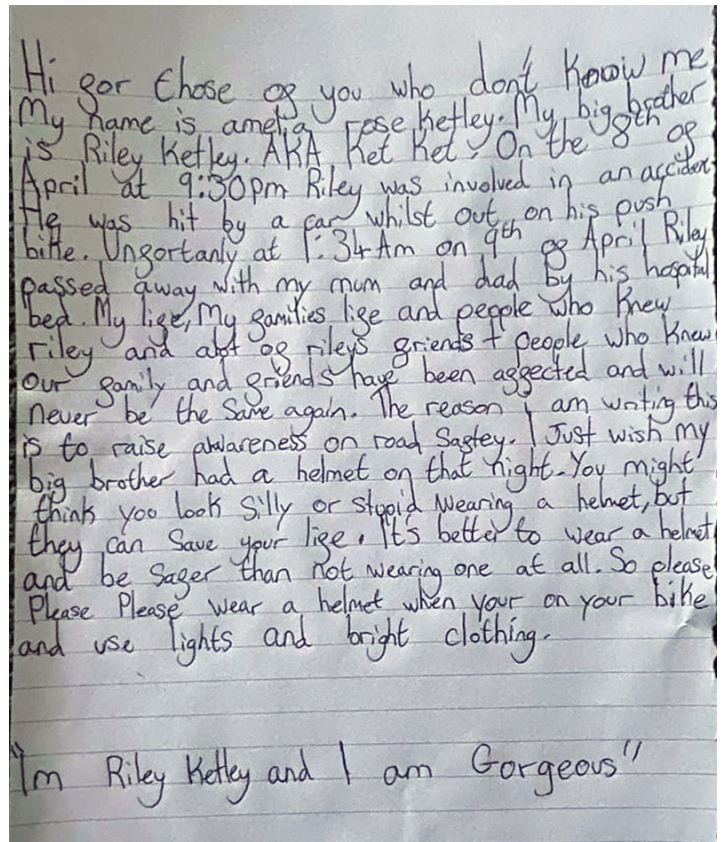 Hi for those of you who don't know me
My name is amelia rose Ketley. My big brother
is Riley Ketley. AKA Ket Ket. On the 8th of
April at 9:30pm Riley was involved in an acciden
He was hit by a car whilst out on his push
bike. Unfortanly at 1:34 Am on 9th of April Riley
passed away with my mum and dad by his hospital
bed. My life, My families life and people who knew
riley and alot of rileys friends + people who knew
our family and friends have been affected and will
never be the same again. The reason I am writing this
is to raise awareness on road Saftey. I Just wish my
big brother had a helmet on that night. You might
think you look Silly or stupid wearing a helmet, but
they can Save your life. It's better to wear a helmet
and be Safer than not wearing one at all. So please
Please Please wear a helmet when your on your bike
and use lights and bright clothing.
"Im Riley Ketley and I am Gorgeous"